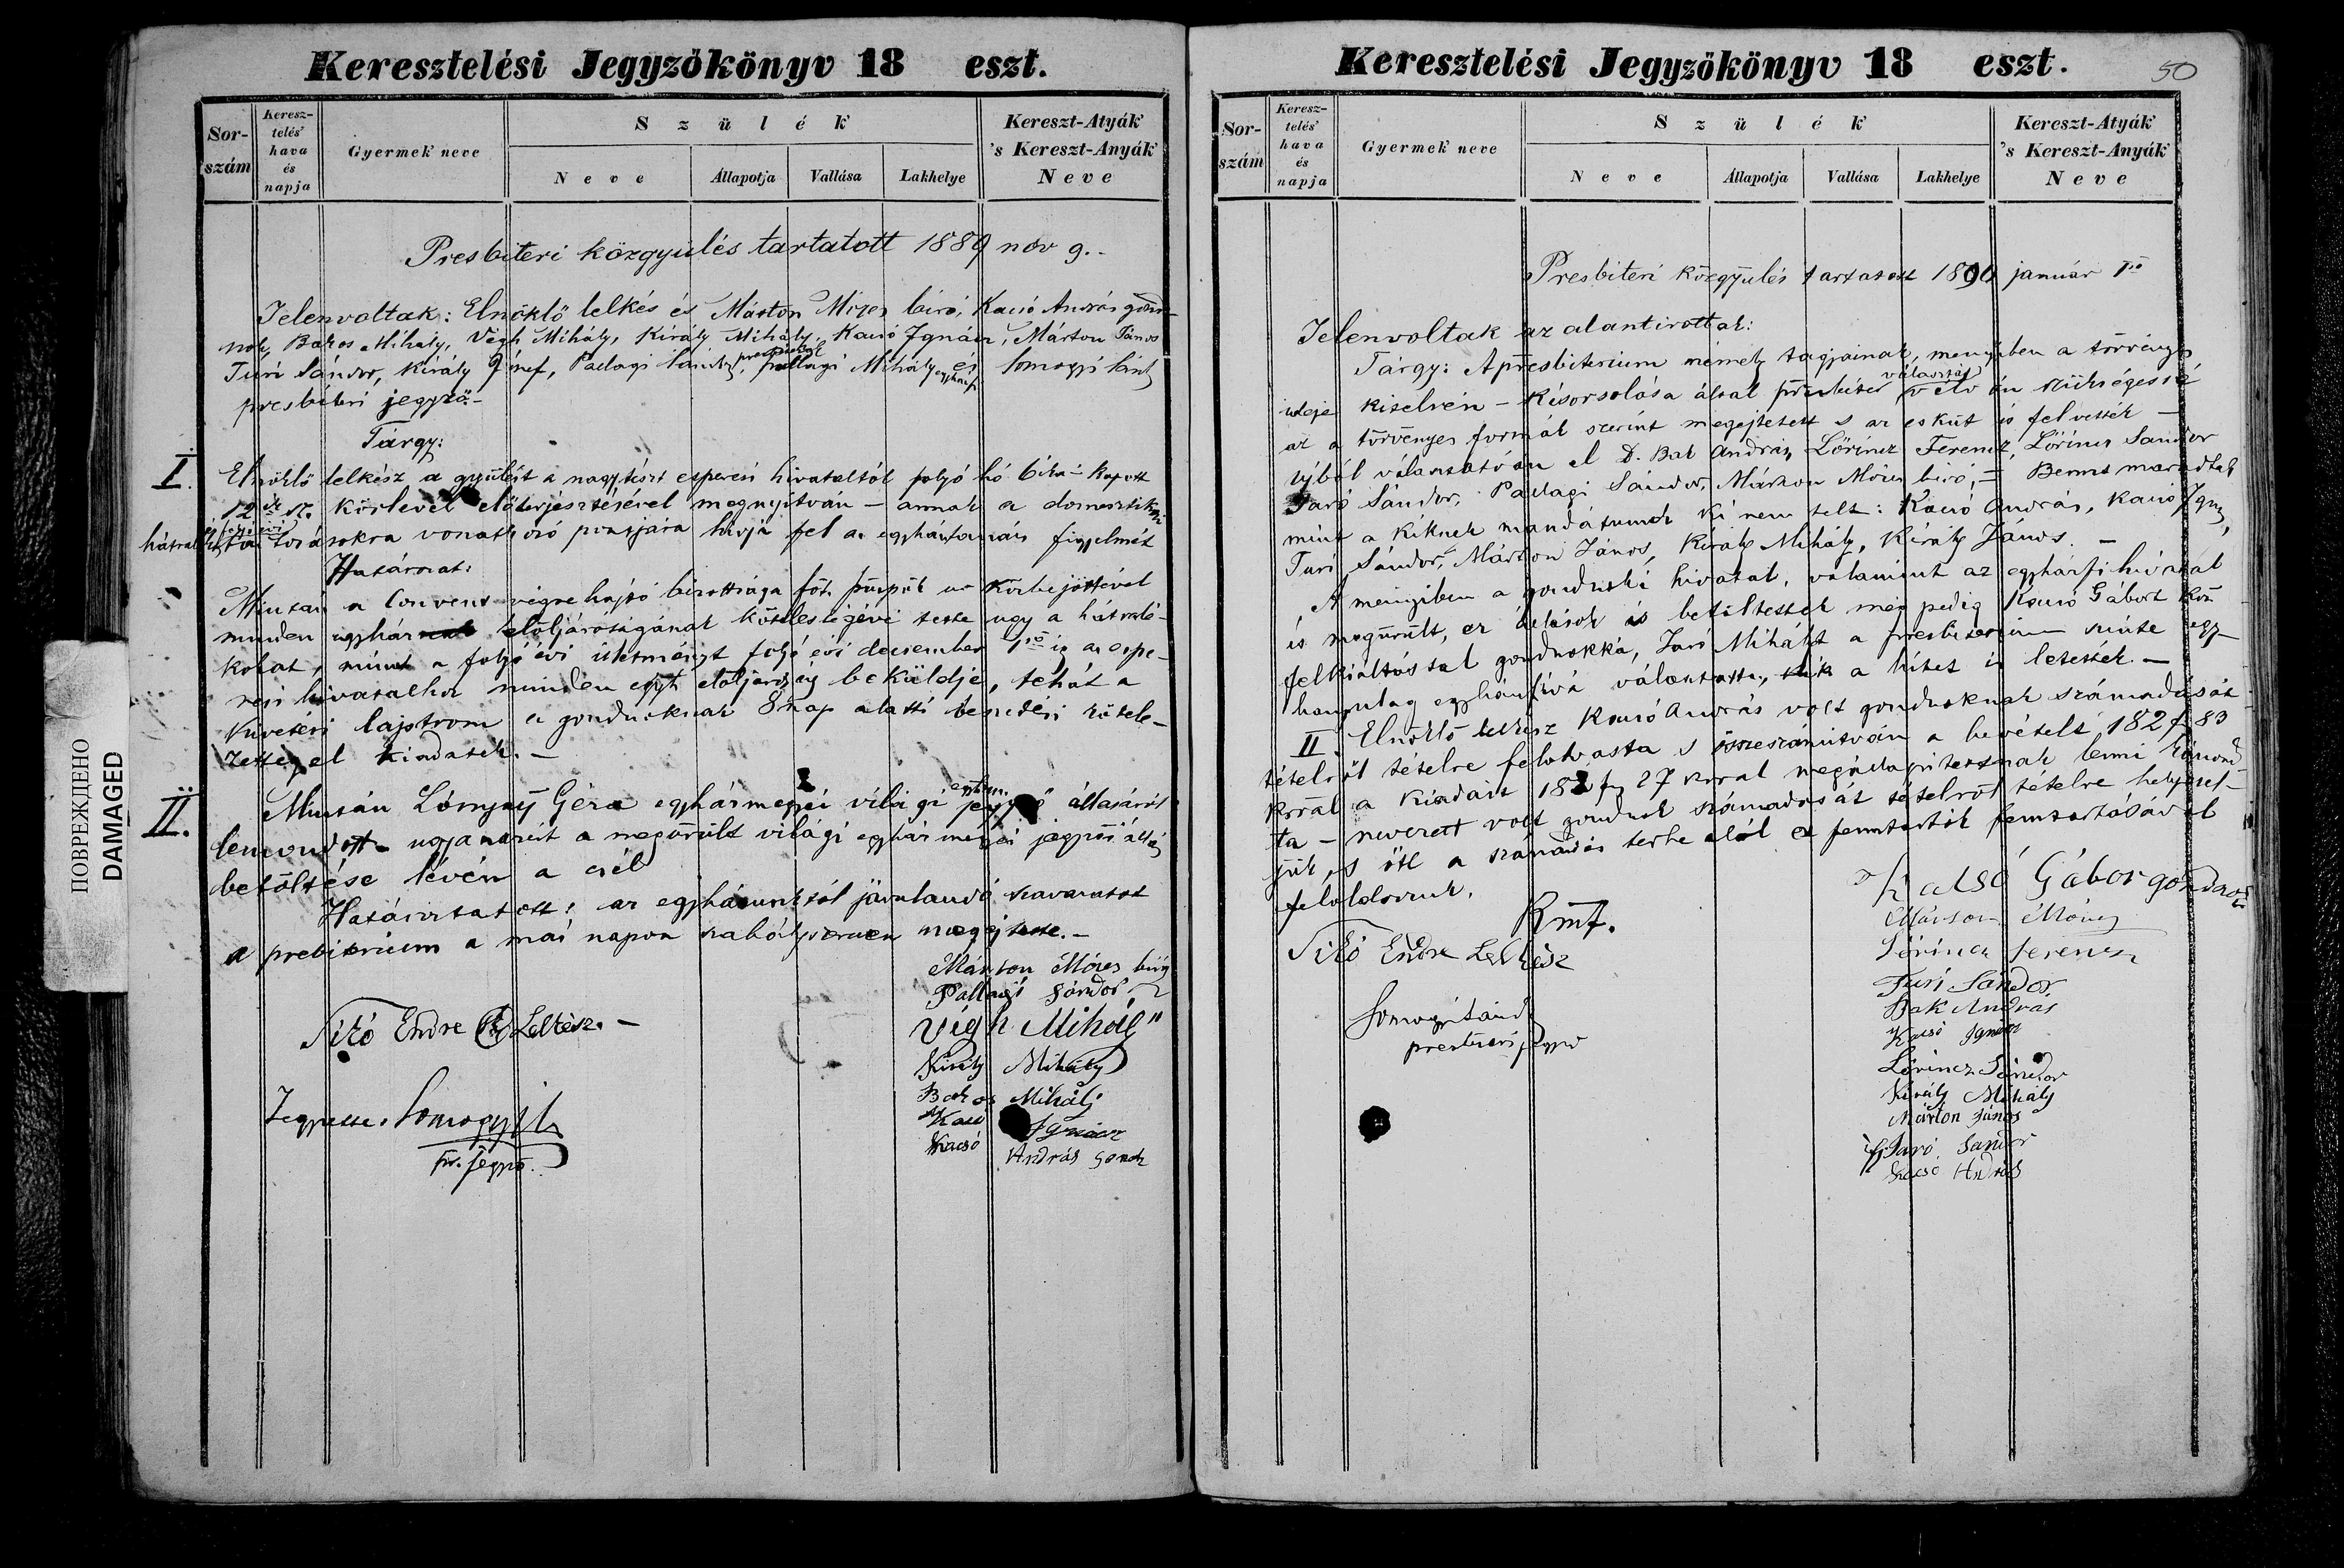 Keresztelési Jegyzökönyv 18 eszt.
Sor-
szám
Keresz-
telés'
hava
és
napja
Gyermek neve
Szülék
Neve
Állapotja
Vallása
Lakhelye
Kereszt-Atyák
's Kereszt-Anyák
Neve
Presbiteri közgyülés tartatott 1889 nov 9.-
Jelenvoltak: Elnöklő lelkés és Márton Mózes biró, Kacsó András gond-
nok, Bakos Mihály, Végh Mihály, Király Mihály, Kacsó Ignácz, Márton János
Turi Sándor, Király József, Pallagi Sándor, presbiterek Pallagi Mihály egyházfi és Somogyi
presbiteri jegyző.-
Tárgy:
I.
Elnöklő lelkész a gyülést a nagytiszt esperesi hivataltól folyó hó kapott
12 körlevél előterjesztésével megnyitván - annak a
vonatkozó pontjára hivja fel az egyháztanács figyelmét
Határozat:
Miután a Convent végrehajtó bizottsága főt. püspök ur közbejöttével
minden egyház elöljáróságának kötelességévé tette ugy a hátralé-
kokat, mint a folyó évi illetményt folyó évi december 1ső ig az espe-
resi hivatalhoz minden egyh elöljáróság beküldje, tehát a
kivetési lajstrom a gondnoknak 8 nap alatti beszedési kötele-
zettséggel kiadatik. -
II.
Miután Lónyay Géza egyházmegyei világi jegyző állásáról
lemondott - ugyanazért a megörült világi egyházmegyei jegyzői állás
betöltése lévén a cél
Határoztatott: az egyházunktól járulandó szavazatot
a prebiterium a mai napon szabályszerüen megejtette. -
Márton Mózes biró
Pallagi Sándor
Végh Mihály
Király Mihály
Bakos Mihálj
Kacsó Ignácz
Kacsó András Gondn
Sikó Endre Lelkész. -
Jegyzette: Somogyi
pr. jegyző.
Keresztelési Jegyzökönyv 18 eszt.
50
Sor-
szám
Keresz-
telés'
hava
és
napja
Gyermek neve
Szülék
Neve
Állapotja
Vallása
Lakhelye
Kereszt-Atyák
's Kereszt-Anyák
Neve
Presbiteri közgyülés tartatott 1890 január 1ső
Jelenvoltak az alantirottak:
Tárgy: A presbiterium némely tagjainak, menyiben a törvényes
ideje kitelvén - kisorsolása által presbiter választás válván szükségessé
az a törvényes formák szerint megejtetett s az esküt is felvették -
ujból választatván el D. Bak András, Lőrincz Ferencz, Lőrincz Sandor
Sándor, Pallagi Sándor, Márton Mózes biró, - Bennt maradtak
mint a kiknek mandátumok ki nem telt: Kacsó András, Kacsó Ignácz,
Turi Sándor, Márton János, Király Mihály, Király János. -
A menyiben a gondnoki hivatal, valamint az egyházfi hivatal
is megürült, ez állások is betöltettek még pedig Kacsó Gábort köz
felkiáltással gondnokká, Mihályt a presbiterium szinte egy-
hangulag egyházfivá választotta, kik a hitet is letették. -
II. Elnöklő lelkész Kacsó András volt gondnoknak számadását
tételről tételre felolvasta s összeszámitván a bevételt 182 f 83
krral a kiadást 182 f 27 krral megállapitottnak lenni kimond-
ta - nevezett volt gondnok számadását tételről tételre helyesel-
jük, s őtt a számadás terhe alól a fenntartók fenntartásával
feloldozzuk.
Kmf.
Sikó Endre Lelkész
Somogyi
presbiteri jegyző
Katsó Gábor gondnok
Márton Mózes
Lőrincz Ferencz
Turi Sándor
Bak András
Kacsó Ignácz
Lőrincz Sándor
Király Mihály
Márton János
Sándor
Kacsó András
ПОВРЕЖДЕНО
DAMAGED